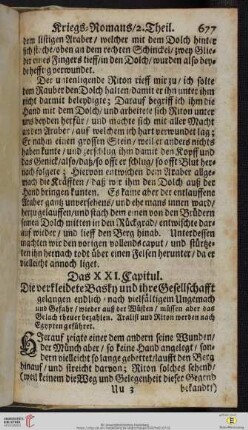 Kriegs-Romans/2. Theil. 677
dem listigen Araber / welcher mit dem Dolch hinter
sich stache / oben an dem rechten Schinckel / zwey Glie-
der eines Fingers tieff / in den Dolch / wurden also bey-
de hefftig verwundet.
Der untenligende Riton rieff mir zu / ich solte
den Rauber den Dolch halten / damit er ihn unter ihm
nicht darmit beleydigte; Darauf begriff ich ihm die
Hand mit dem Dolch / und arbeitete sich Riton unter
uns beyden herfür / und machte sich mit aller Macht
an den Araber / auf welchem ich hart verwundet lag;
Er nahm einen grossen Stein / weil er anders nichts
haben kunte / und zerschlug ihm damit den Kopff und
das Genick / also / daß / so offt er schlug / so offt Blut her-
nach folgete; Hiervon entwichen dem Araber allge-
mach die Kräfften / daß wir ihm den Dolch auß der
Hand bringen kunten. Es kame aber der entlauffene
Araber gantz unversehens / und ehe mans innen ward /
herzu gelauffen / und stach dem einen von den Brüdern
seinen Dolch mitten in den Rückgrad / entwischte dar-
auf wieder / und lieff den Berg hinab. Unterdessen
machten wir den vorigen vollends caput / und stürtze-
ten ihn hernach todt über einen Felsen herunter / da er
vielleicht annoch liget.
Das XXI. Capitul.
Die verkleidete Basky und ihre Gesellschafft
gelangen endlich / nach vielfältigem Ungemach
und Gefahr / wieder auß der Wüsten / müssen aber das
Gelach theuer bezahlen. Aralist und Riton werden nach
Egypten geführet.
Hierauf zeigte einer dem andern seine Wunden /
der Münch aber / so keine Hand angelegt / son-
dern vielleicht so lange gebettet / laufft den Berg
hinauf / und streicht darvon; Riton solches sehend /
(weil keinem die Weg und Gelegenheit dieser Gegend
Uu 3 bekandt)